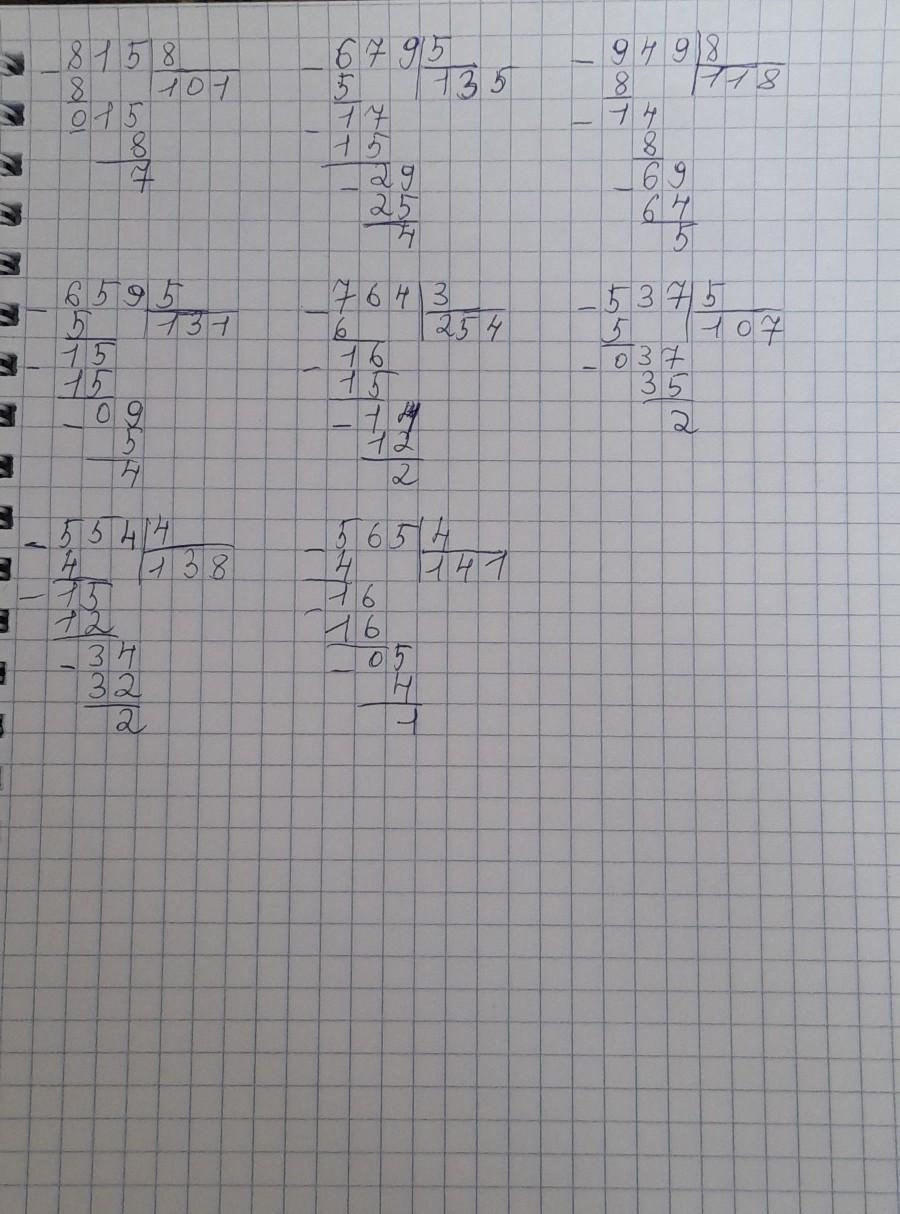 815 8 679 5 949 8
8 101 5 135 8 118
015 17 14
8 15 8
7 29 69
25 64
4 5
659 5 764 3 537 5
5 131 6 254 5 107
15 16 037
15 15 35
09 14 2
5 12
4 2
554 4 565 4
4 138 4 141
15 16
12 16
34 05
32 4
2 1